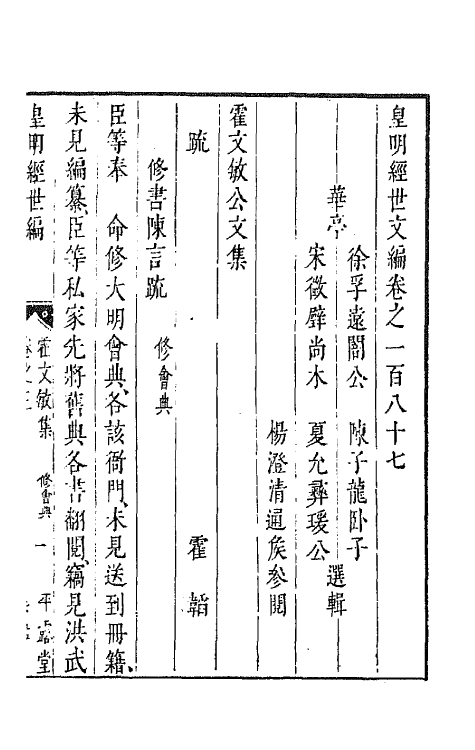 皇明經世文編卷之一百八十七
華亭
徐孚遠闇公 陳子龍卧子
宋徵璧尚木 夏允彝瑗公
選輯
楊澄清通矦參閱
霍文敏公文集
疏 霍韜
修書陳言疏 修會典
臣等奉 命修大明會典、各該衙門、未見送到冊籍、
未見編纂、臣等私家先將舊典各書翻閱、竊見洪武
皇明經世編 霍文敏集 修會典 一 平露堂